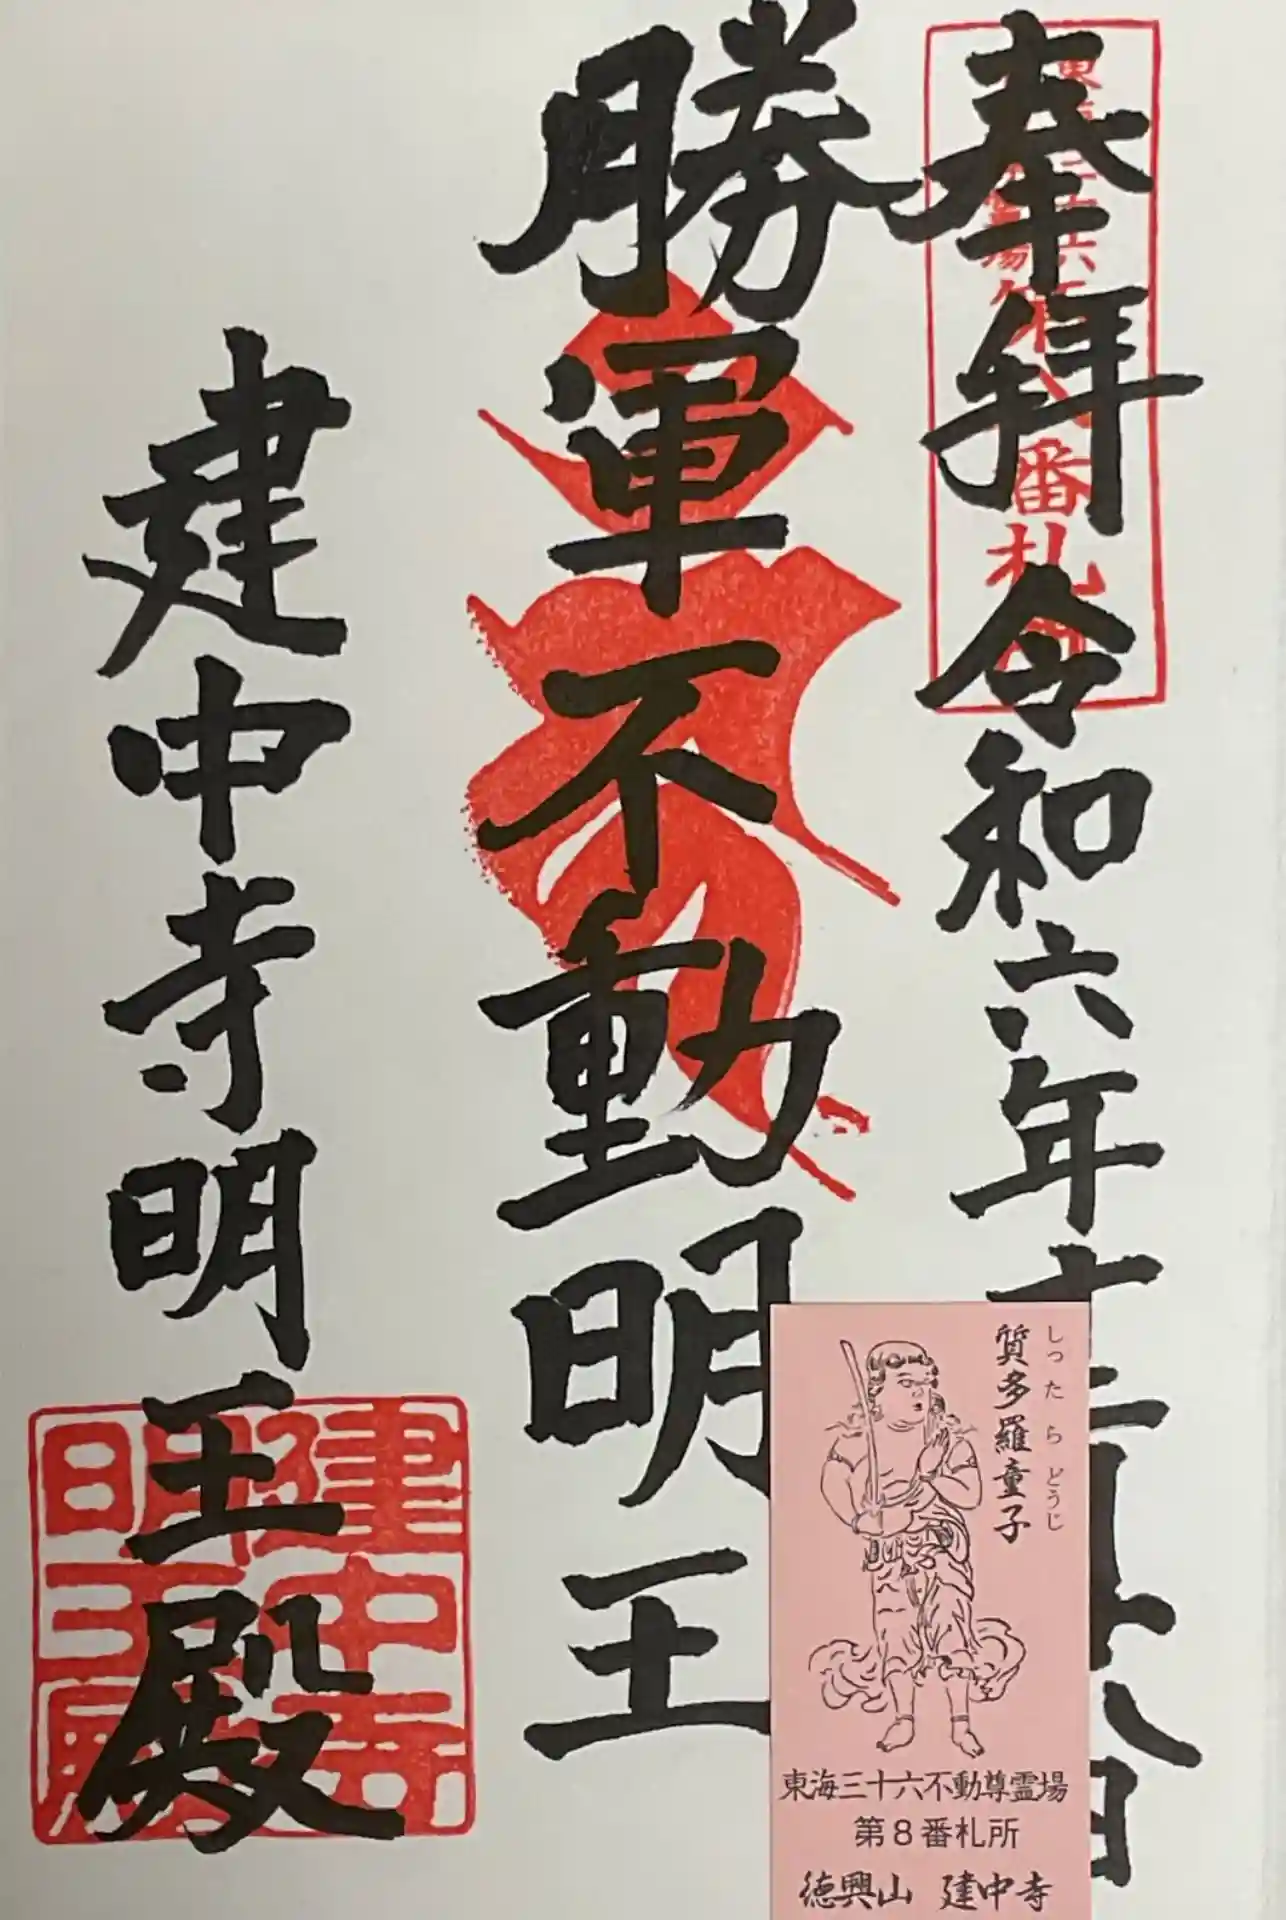 奉拝 令和六年十二月十八日
勝軍不動明王
建中寺明王殿
番札所
建中寺
明王殿
しったらどうじ
質多羅童子
東海三十六不動尊霊場
第8番札所
徳興山 建中寺